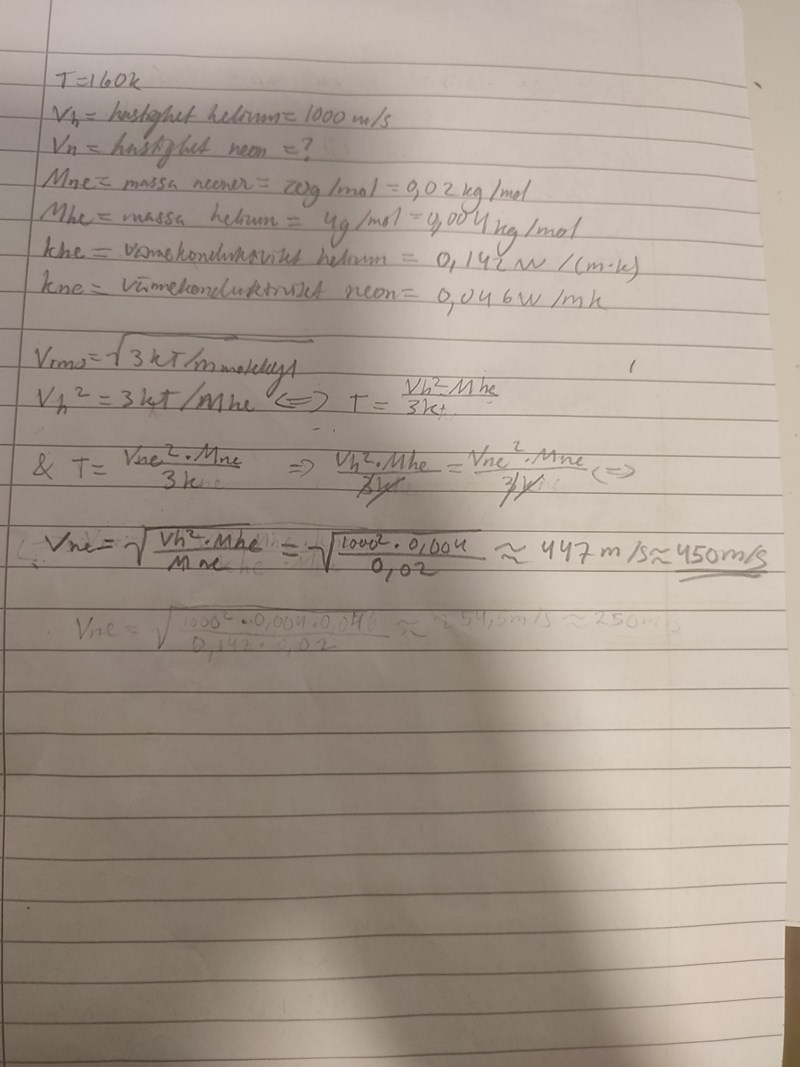 T=160k
Vh = hastighet helium = 1000 m/s
Vn = hastighet neon = ?
Mne = massa = 20g/mol = 0,02 kg/mol
Mhe = massa helium = 4g/mol = 0,004 kg/mol
khe = helium = 0,142 W/(m·k)
kne = neon = 0,046 W/mk
Vrms = √3kT/m
Vh² = 3kT/Mhe <=> T = Vh²·Mhe/3k
& T = Vne²·Mne/3k => Vh²·Mhe/3k = Vne²·Mne/3k <=>
Vne = √Vh²·Mhe/Mne = √1000²·0,004/0,02 ≈ 447 m/s ≈ 450 m/s
Vne = √1000²·0,004·0,046/0,142·0,02 ≈ 254,5 m/s ≈ 250 m/s